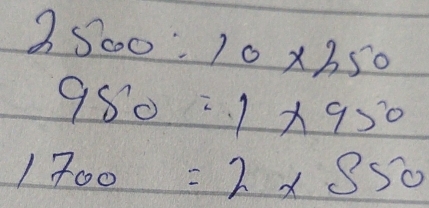 2500 : 10 x 250
950 = 1 x 950
1700 = 2 x 850